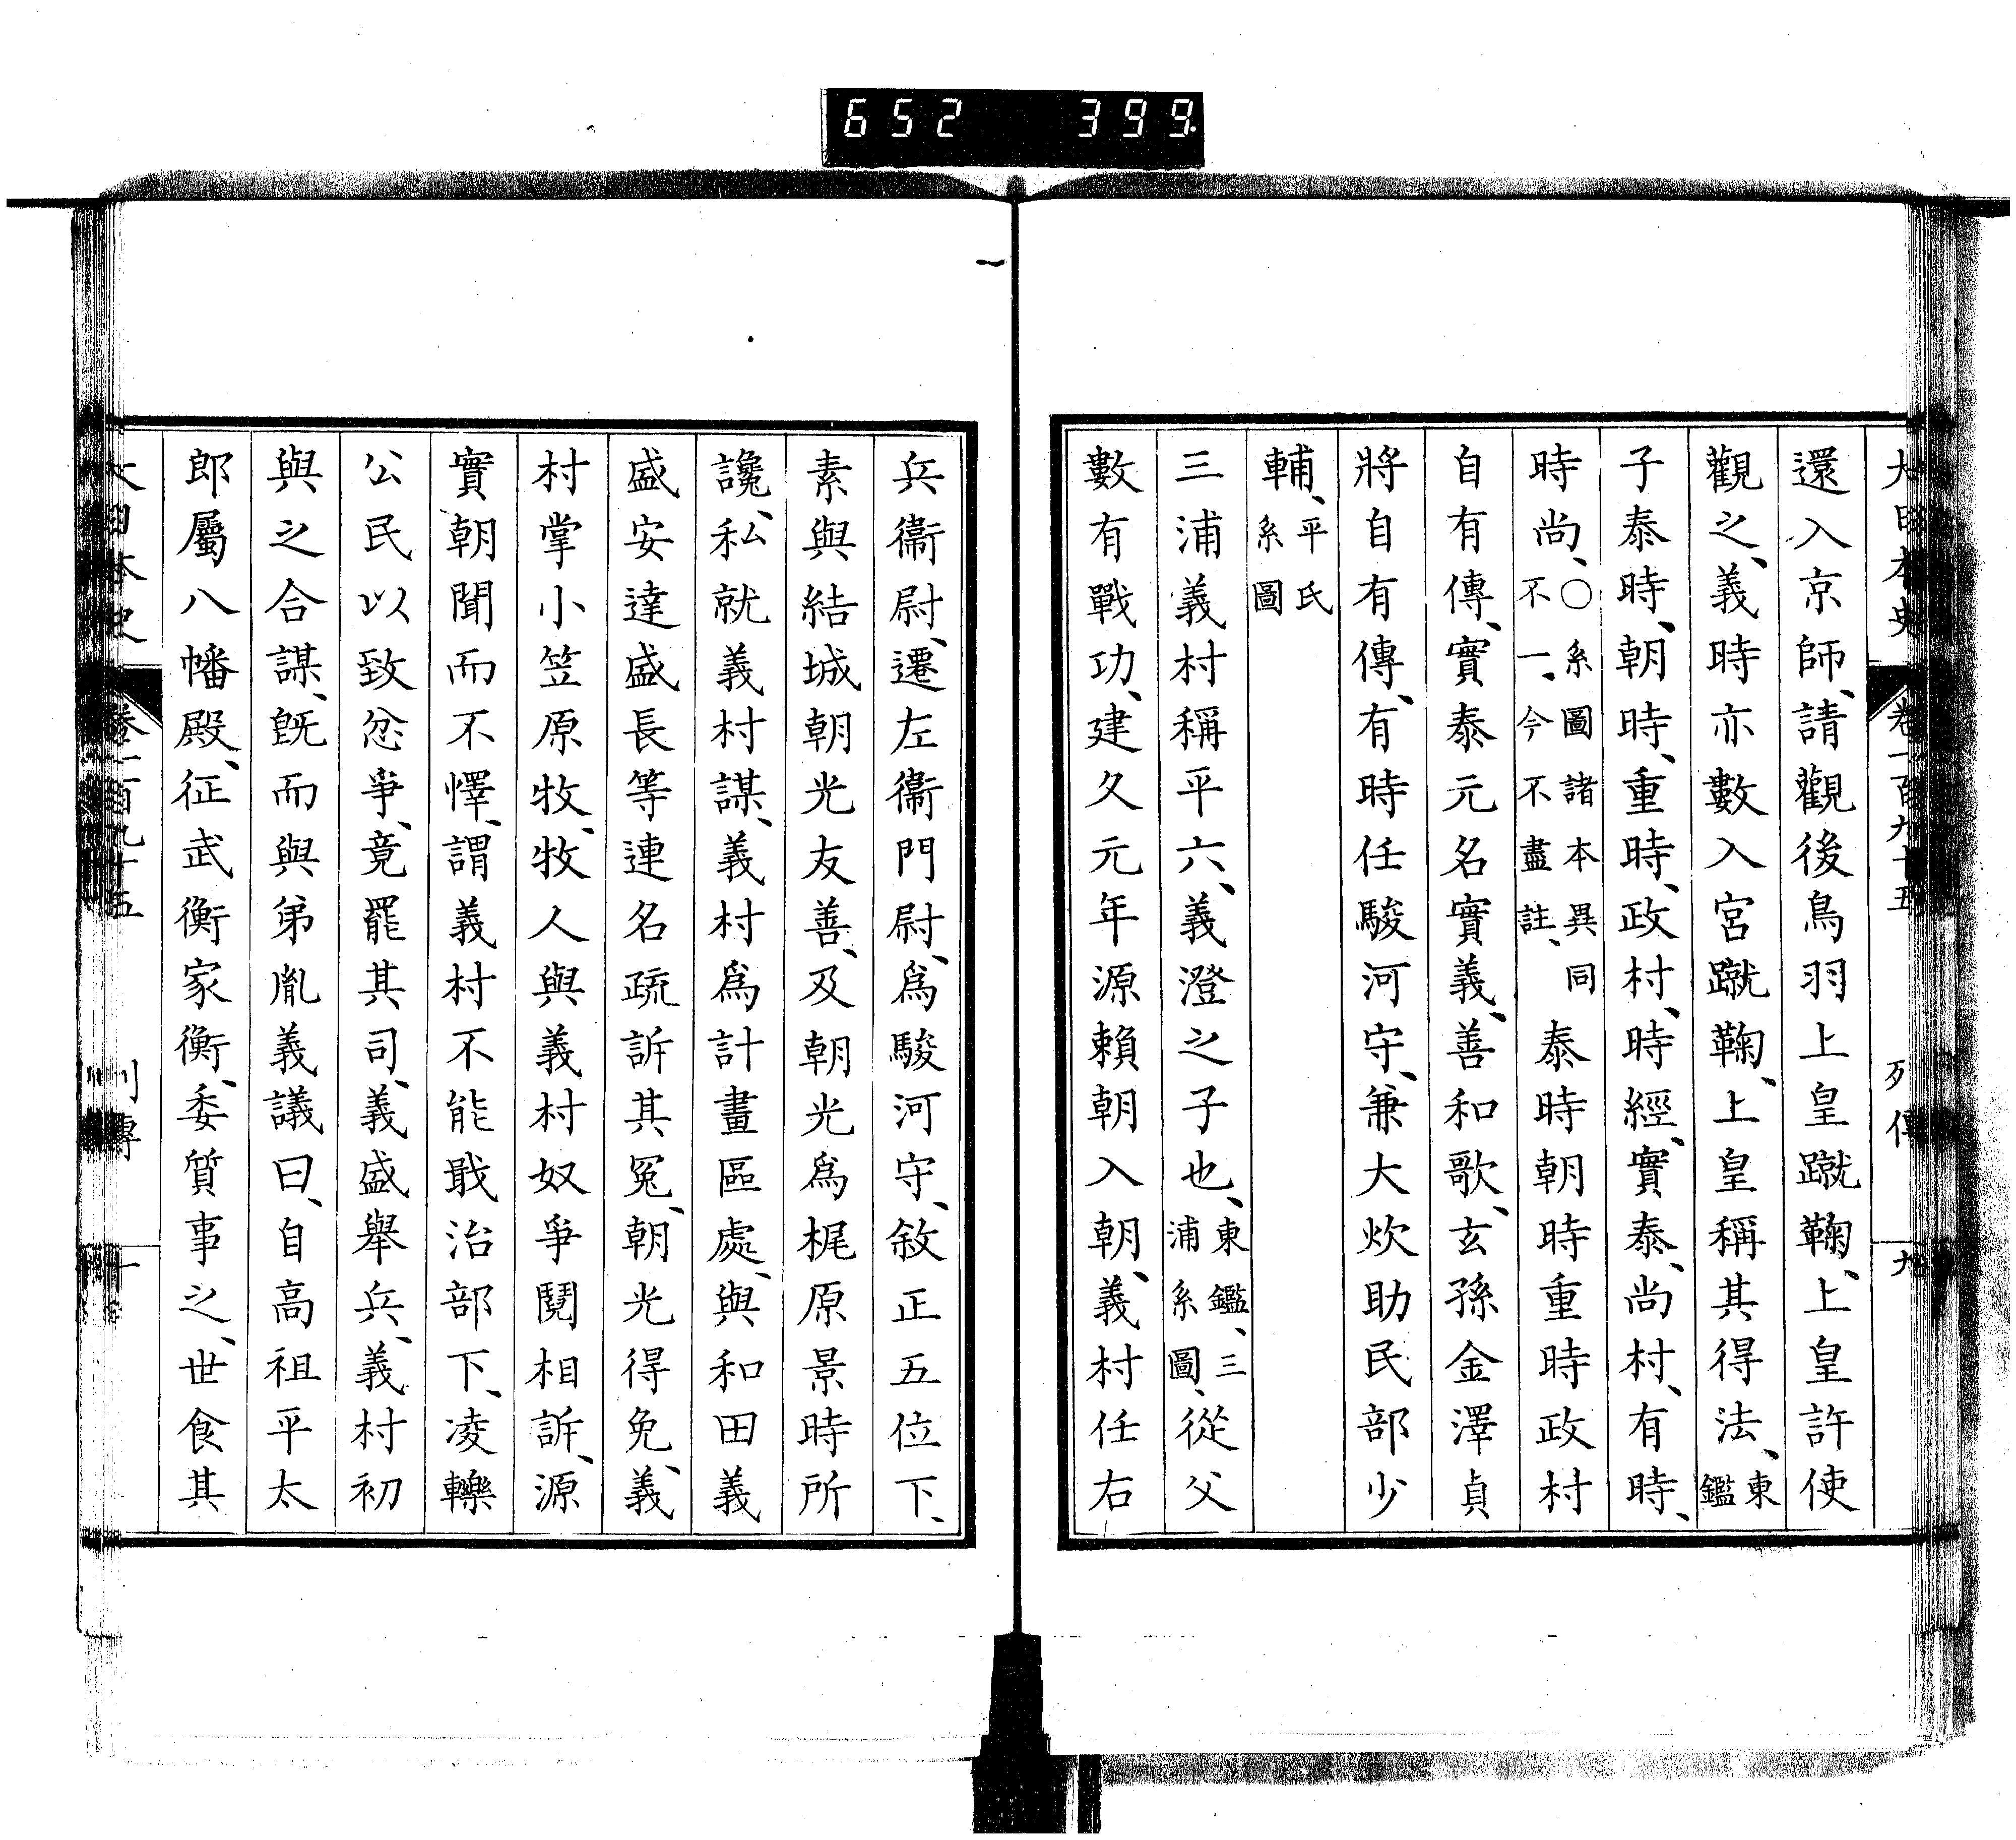 652 399
大日本史 卷一百九十五 列傳 九
還入京師、請觀後鳥羽上皇蹴鞠、上皇許使
觀之、義時亦數入宮蹴鞠、上皇稱其得法、東鑑
子泰時、朝時、重時、政村、時經、實泰、尚村、有時、
時尚、〇系圖諸本異同不一、今不盡註、泰時朝時重時政村
自有傳、實泰元名實義、善和歌、玄孫金澤貞
將自有傳、有時任駿河守、兼大炊助民部少
輔、平氏系圖
三浦義村稱平六、義澄之子也、東鑑、三浦系圖、從父
數有戰功、建久元年源賴朝入朝、義村任右
兵衞尉、遷左衞門尉、爲駿河守、敘正五位下、
素與結城朝光友善、及朝光爲梶原景時所
讒、私就義村謀、義村爲計畫區處、與和田義
盛安達盛長等連名疏訴其冤、朝光得免、義
村掌小笠原牧、牧人與義村奴爭鬩相訴、源
實朝聞而不懌、謂義村不能戢治部下、凌轢
公民以致忿爭、竟罷其司、義盛舉兵、義村初
與之合謀、旣而與弟胤義議曰、自高祖平太
郎屬八幡殿、征武衡家衡、委質事之、世食其
大日本史 卷一百九十五 列傳 十